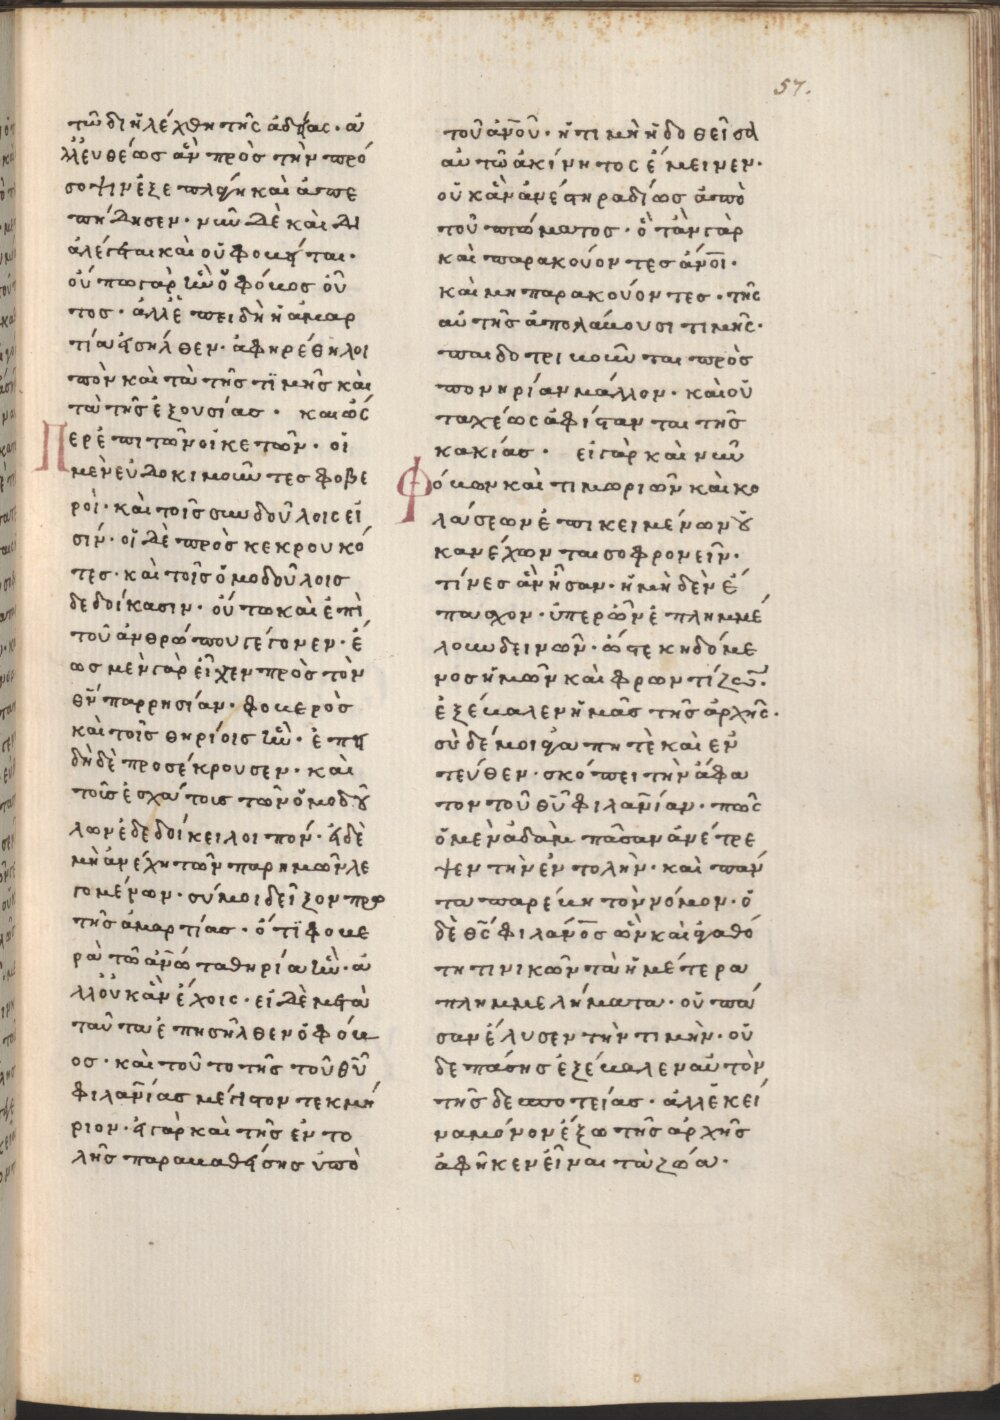 57.
τῶ διηλέχθη τῆς ἀδείας· ἀ
λλ' ευθέως ἂν πρὸς τὴν πρό
σοψιν ἐξεπλάγη καὶ ἀπε
πήδησεν· νῦν δὲ καὶ δι
αλέγεται καὶ οὐ φοβεῖται·
οὔπω γὰρ ἦν ὁ φόβος οὗ
τος· ἀλλ' ἐπειδὴ ἡ ἁμαρ
τία εἰσῆλθεν· ἀφηρέθη λοι
πὸν καὶ τὰ τῆς τϊμῆς καὶ
τὰ τῆς ἐξουσίας· καὶ ὥσ
περ ἐπι τῶν οἰκετῶν· οἱ
μὲν ευδοκιμοῦντες φοβε
ροὶ· καὶ τοῖς συνδούλοις εἰ
σίν· οἱ δὲ προσκεκρουκό
τες· καὶ τοῖς ὁμοδούλοις
δεδοίκασιν· οὕτω καὶ ἐπὶ
τοῦ ἀνθρώπου γέγονεν· ἕ
ως μὲν γὰρ εἶχεν πρὸς τὸν
θν παρρησίαν· φοβερὸς
καὶ τοῖς θηρίοις ἦν· ἐπει
δὴ δὲ προσέκρουσεν· καὶ
τοῖς ἐσχάτοις τῶν ὁμοδού
λων ἐδεδοίκει λοιπόν· εἰ δὲ
μὴ ἀνέχη τῶν παρ ημῶν λε
γομένων· σύ μοι δεῖξον πρὸ
τῆς ἁμαρτίας· ὅτϊ φοβε
ρὰ τῶ ἀνω τα θηρία ἦν· ἀ
λλ' οὐκ ἂν ἔχοις· εἰ δὲ μετὰ
ταῦτα ἐπησῆλθεν ὁ φόβ
ος· καὶ τοῦτο τῆς τοῦ θυ
φιλανίας μέγιστον τεκμή
ριον· εἰ γὰρ καὶ τῆς ἐντο
λῆς παραβαθείσης ὑπὸ
τοῦ ἀνου· ἡ τιμὴ ἡ δοθεῖσα
αυτῶ ἀκίνητος ἔμεινεν·
οὐκ ἂν ἀνέστη ραδίως ἀπὸ
τοῦ πτώματος· ὅταν γὰρ
καὶ παρακούοντες ἀνοι·
καὶ μη παρακούοντες· τῆς
αὐτῆς ἀπολαύουσι τιμῆς·
παιδοτριβοῦνται πρὸς
πονηρίαν μάλλον· καὶ οὐ
ταχέως ἀφίστανται τῆς
κακίας· εἰ γὰρ καὶ νῦν
φόβων καὶ τιμωριῶν καὶ κο
λάσεων ἐπικειμένων οὐ
κ ανέχωνται σοφρονεῖν·
τίνες ἂν ἦσαν· ἢ μὴδὲν ἔ
πασχον· ὑπερ ὧν ἐπλημμέ
λουν δεινῶν· ὥστε κηδόμε
νος ἡμῶν καὶ φρωντίζων·
ἐξέβαλεν ἡμᾶς τῆς ἀρχῆς·
σὺ δέ μοι ἀγαπητὲ καὶ εν
τεύθεν· σκόπει τὴν ἄφα
τον τοῦ θυ φιλανίαν· πῶς
ὁ μὲν ἀδὰμ πᾶσαν ἀνέτρε
ψεν τὴν ἐντολὴν· καὶ πάν
τα παρέβη τὸν νόμον· ὁ
δὲ θς φιλάνος ὢν καὶ ἀγαθό
τητι νικῶν τὰ ἡμέτερα
πλημμελήματα· οὐ πᾶ
σαν ἔλυσεν τὴν τιμὴν· οὐ
δε πάσης ἐξέβαλεν αὐτὸν
τῆς δεσποτείας· ἀλλ' ἐκεῖ
να μόνον ἔξω τῆς ἀρχῆς
ἀφῆκεν εἶναι τὰ ζῶα·